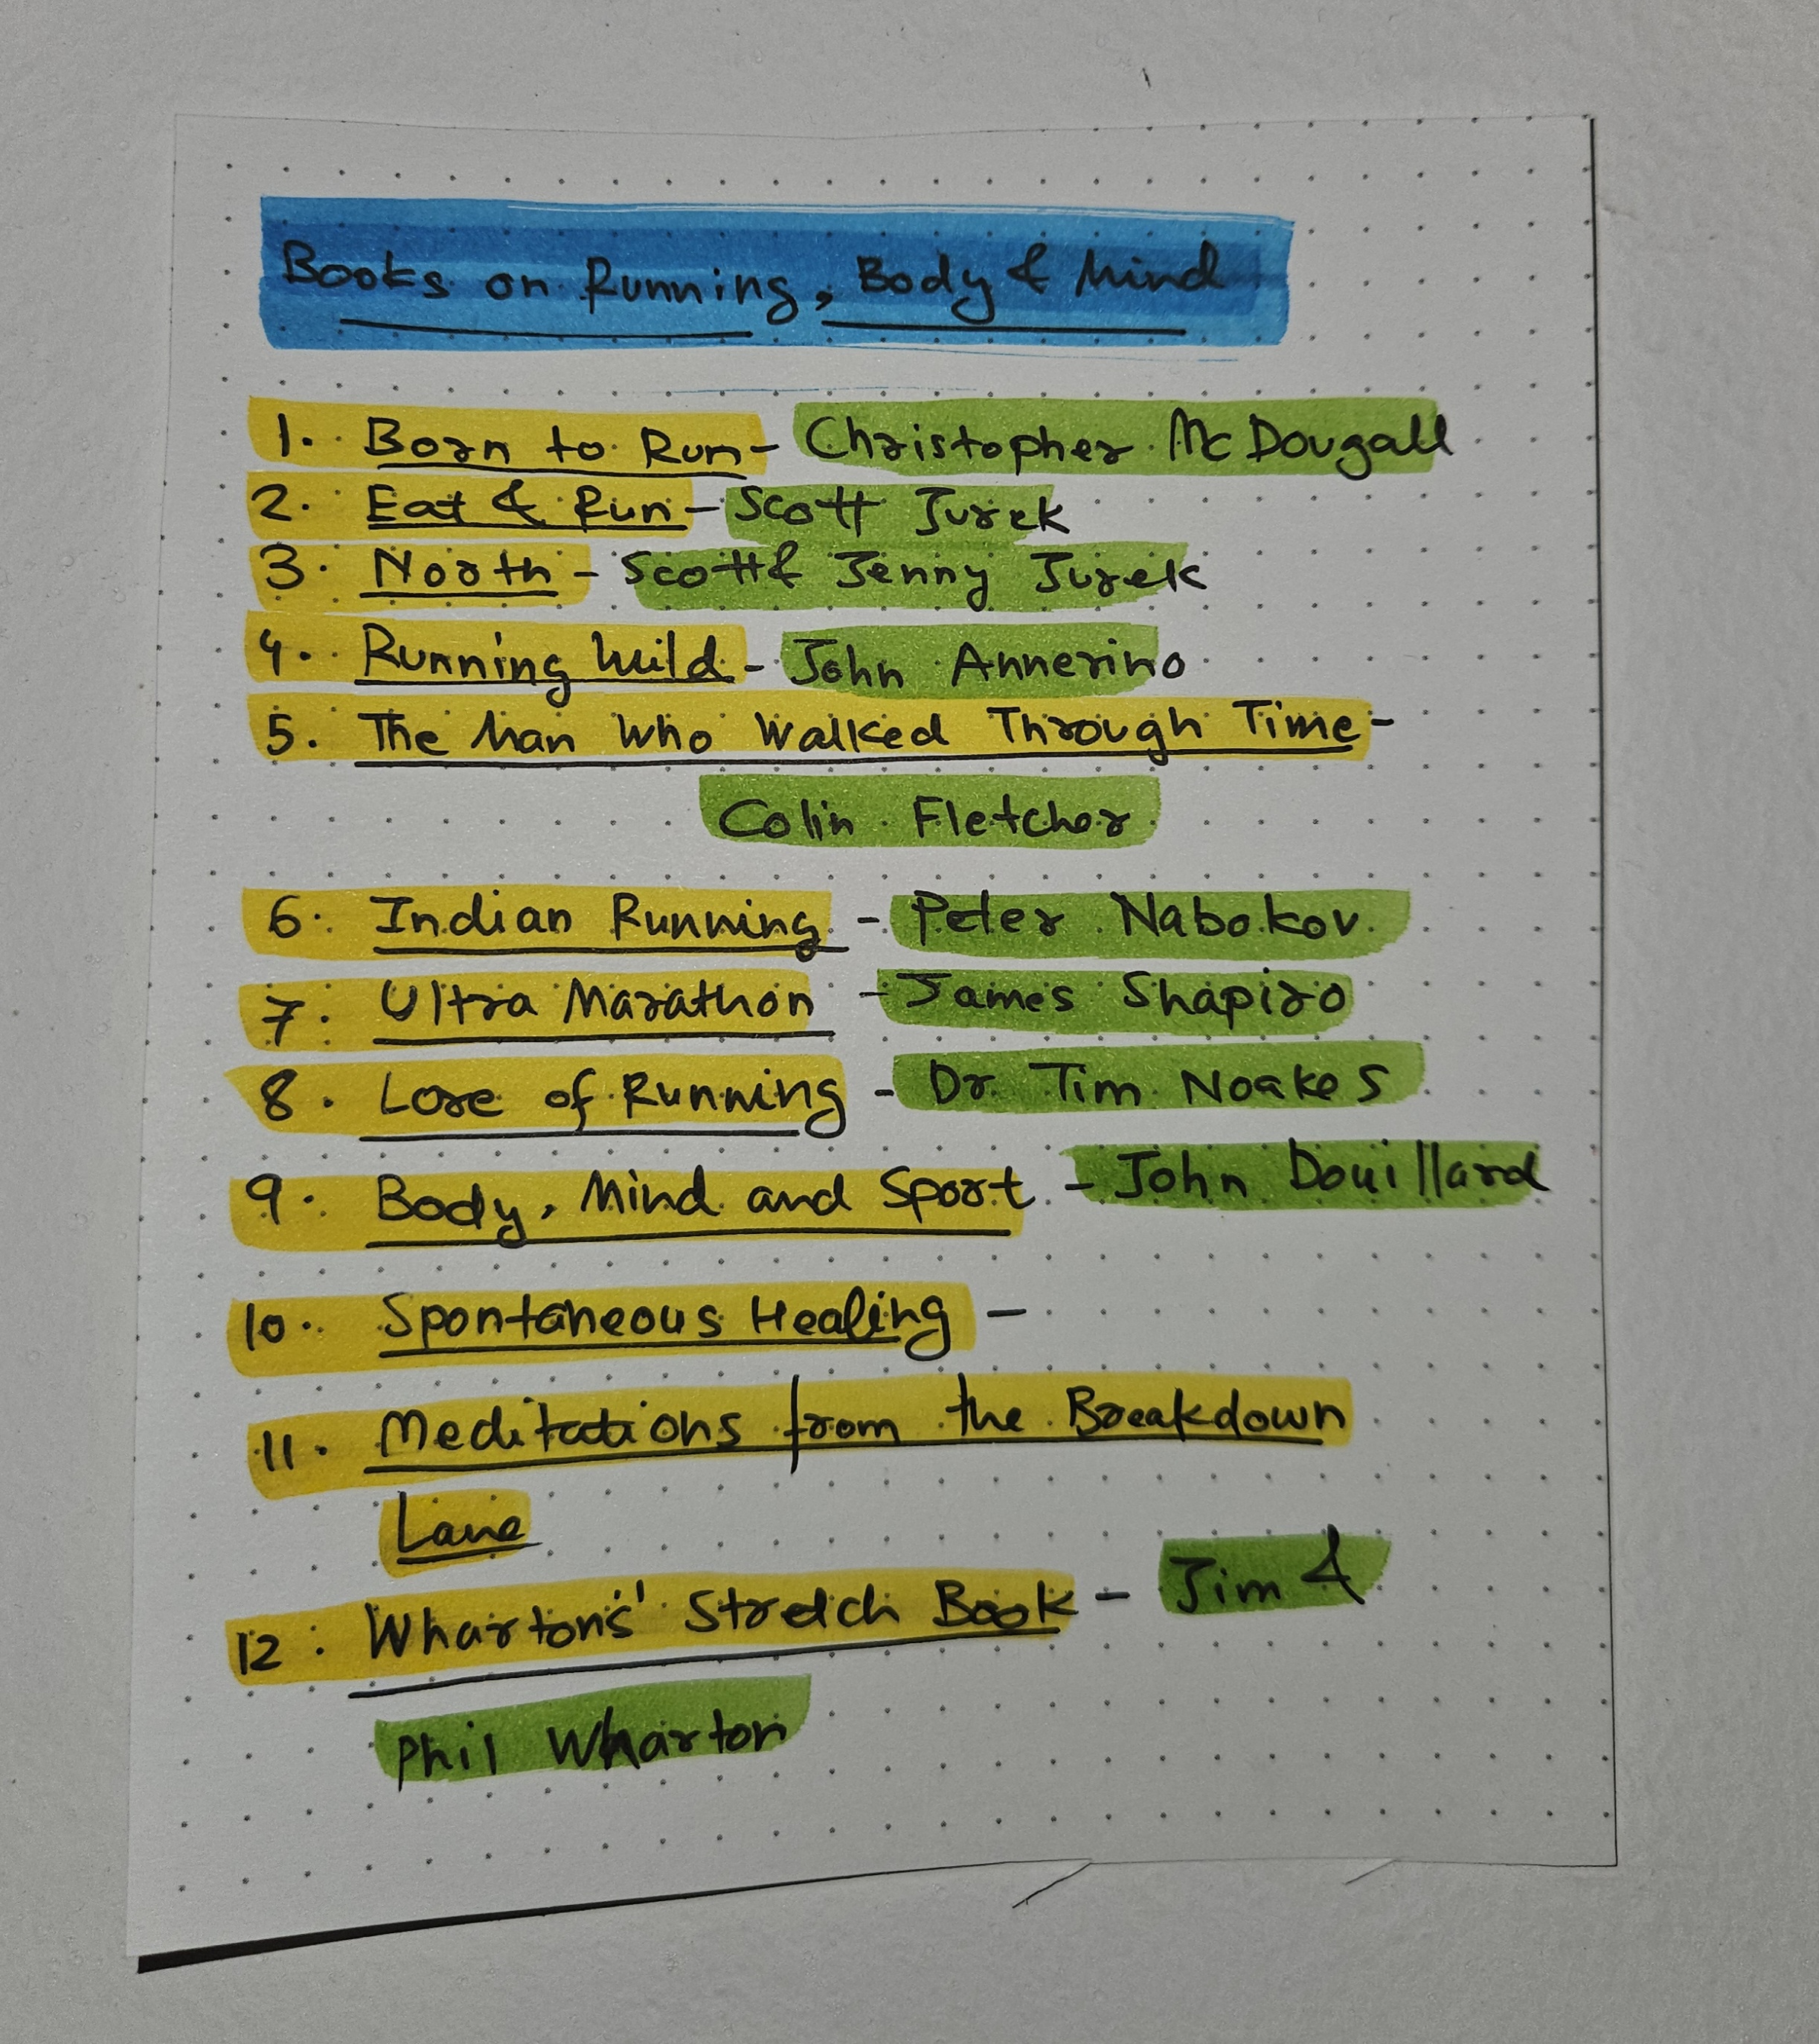 Books on Running, Body & Mind
1. Born to Run - Christopher McDougall
2. Eat & Run - Scott Jurek
3. North - Scott & Jenny Jurek
4. Running Wild - John Annerino
5. The Man Who Walked Through Time -
Colin Fletcher
6. Indian Running - Peter Nabokov
7. Ultra Marathon - James Shapiro
8. Lore of Running - Dr. Tim Noakes
9. Body, Mind and Sport - John Douillard
10. Spontaneous Healing -
11. Meditations from the Breakdown
Lane
12. Whartons' Stretch Book - Jim &
Phil Wharton